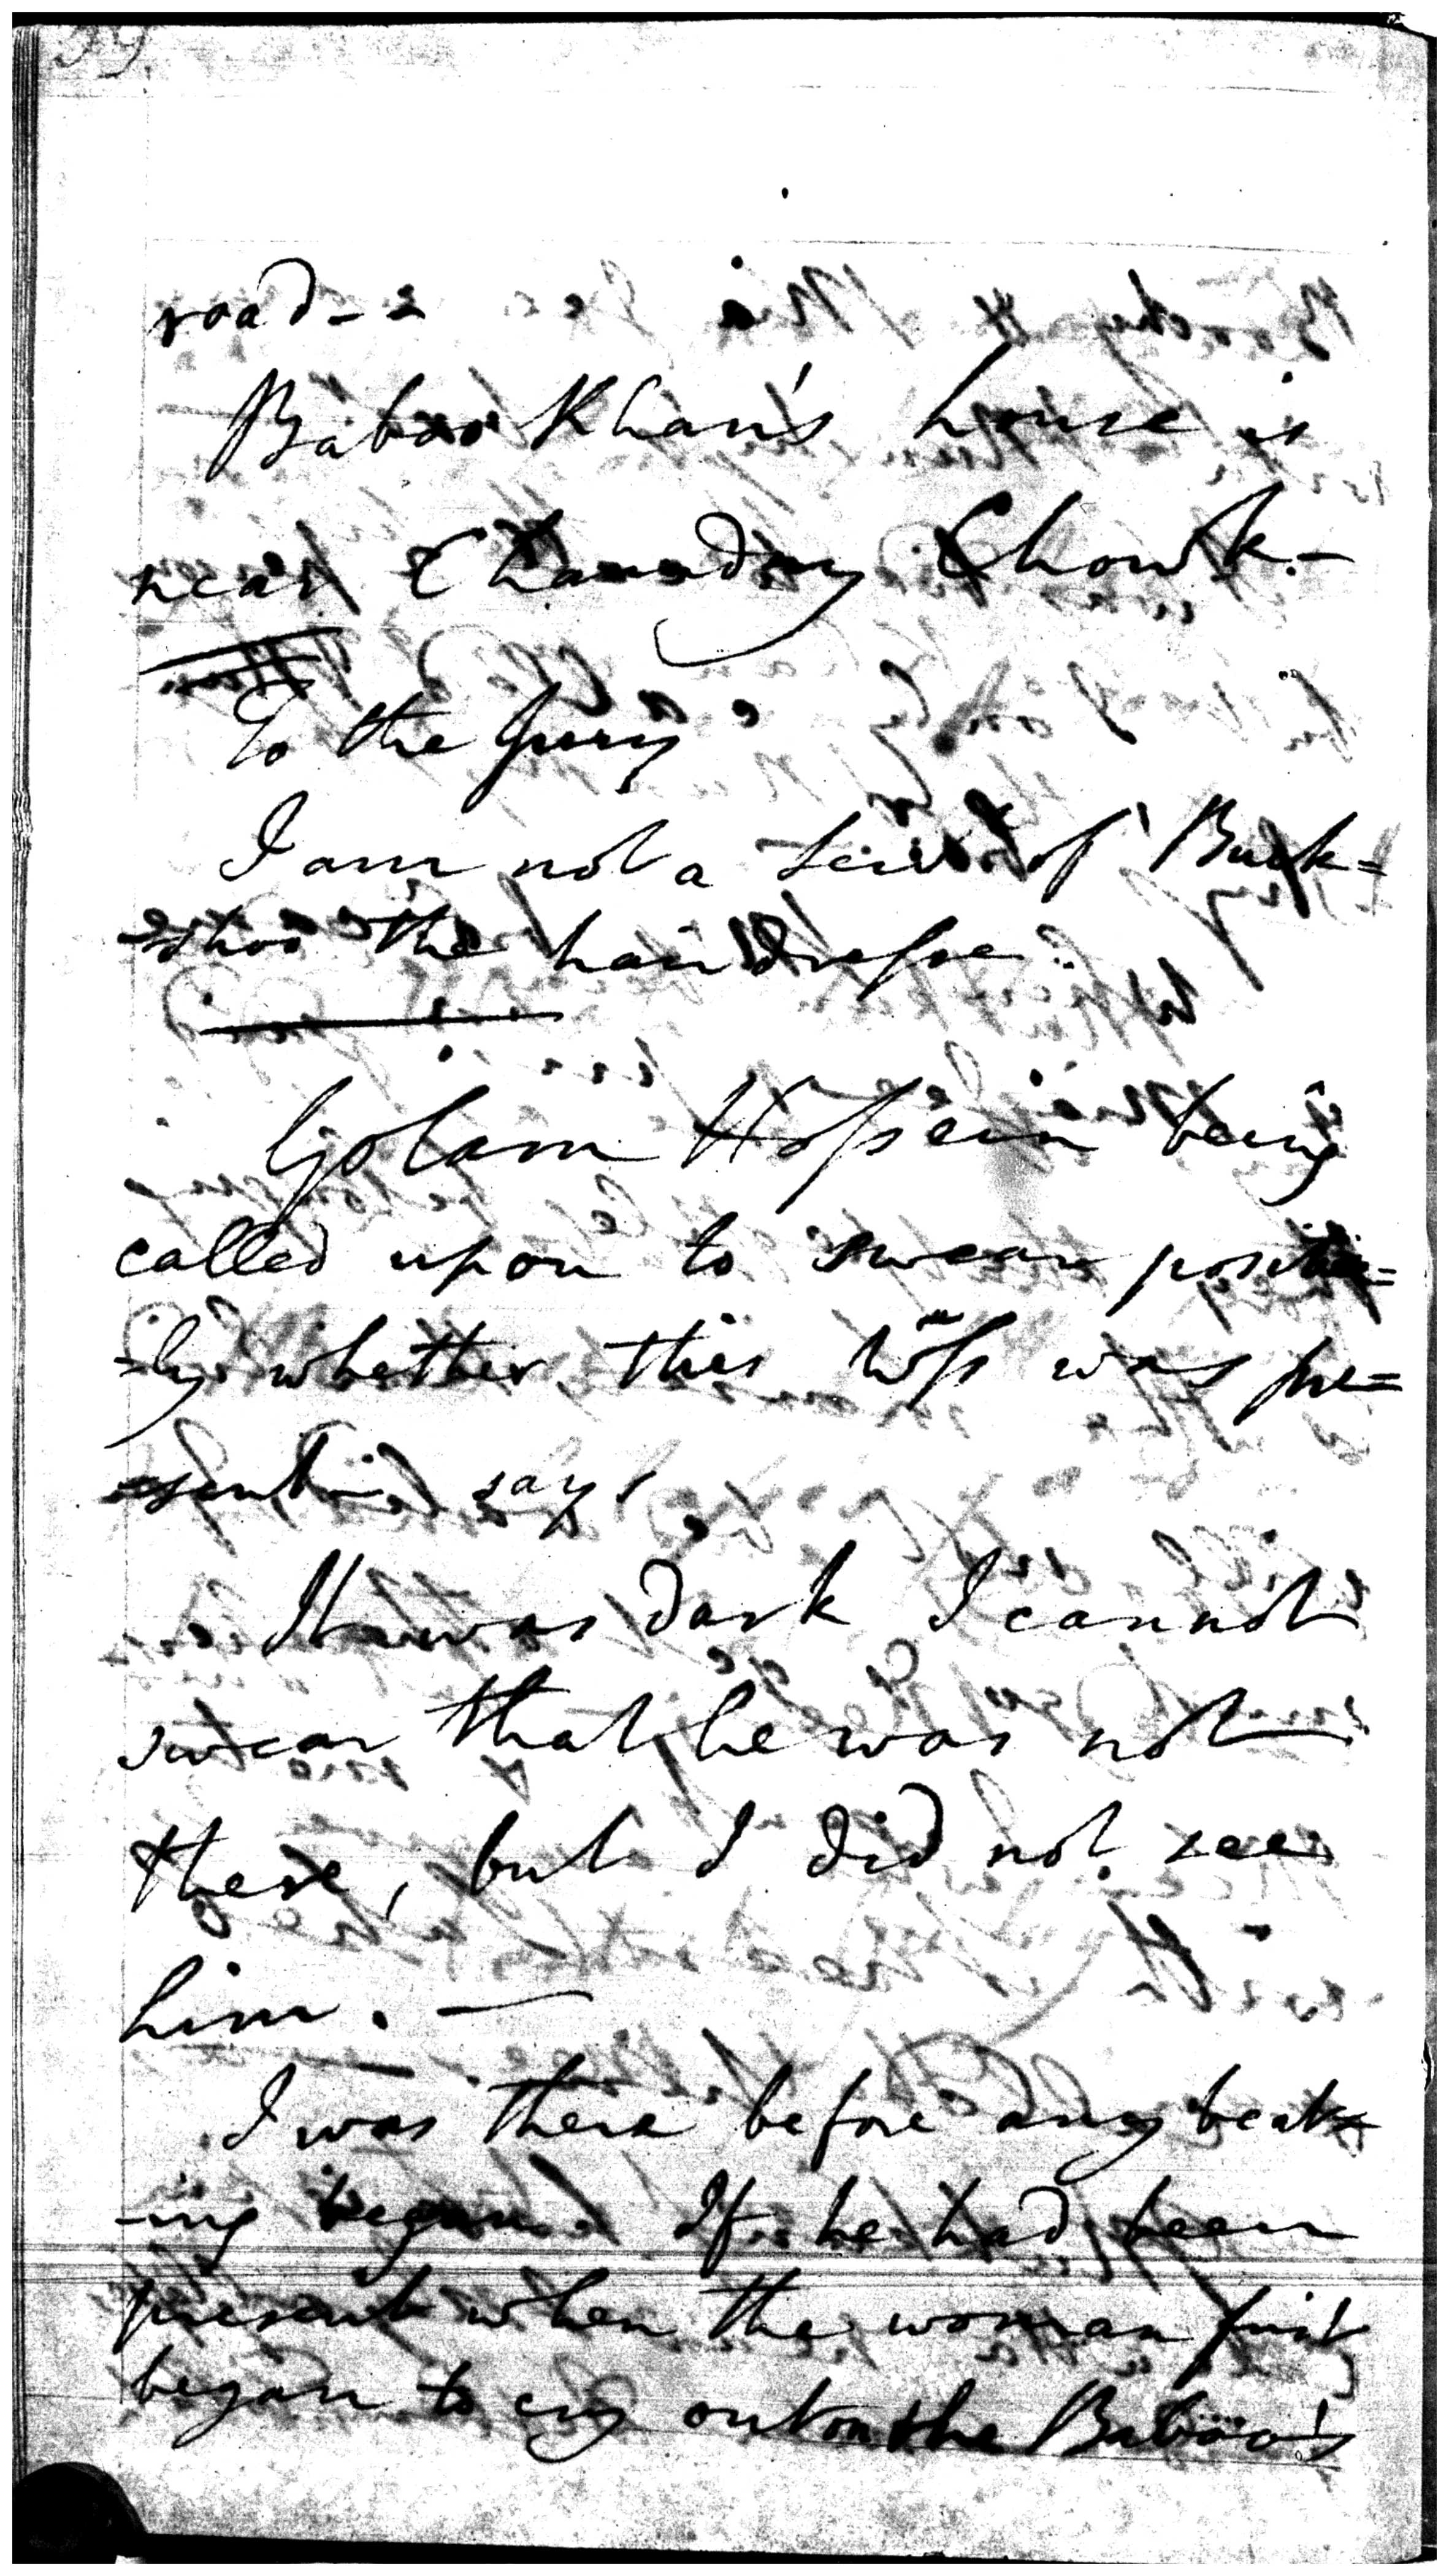 road -
Baboo Khan's house is
near Chandny Chowk. -
To the Jury
I am not a servt of Buck=
=shoo the hairdresser
Golam Hossein being
called upon to swear positive=
=ly whether this Wss was pre=
=sent - says
It was dark I cannot
swear that he was not
there, but I did not see
him. -
I was there before any beat=
=ing began. If he had been
present when the woman first
began to cry out on the Baboo's